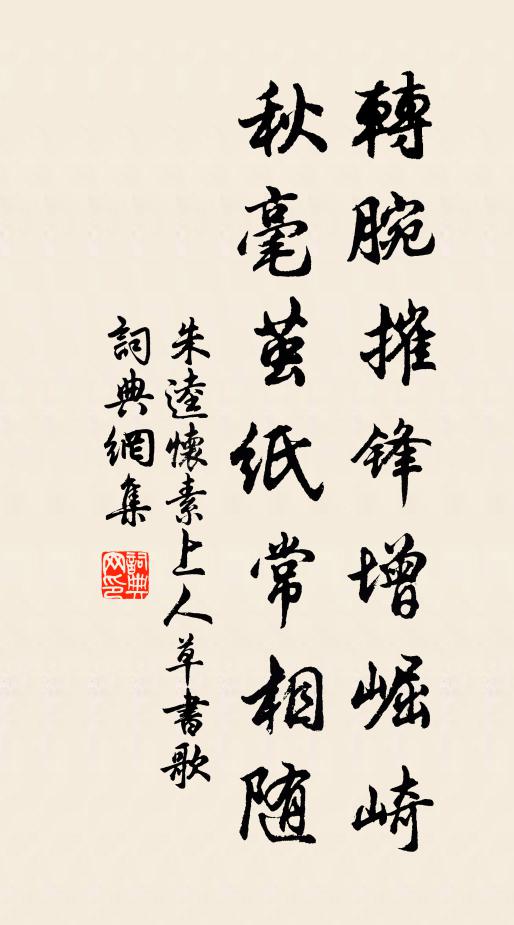 轉腕摧鋒增崛崎
秋毫茧紙常相随
朱逵懷素上人草書歌
詞典網集
詞典网印